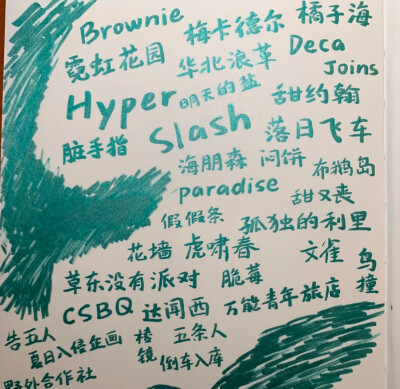 Brownie 梅卡德尔 橘子海
霓虹花园 华北浪革 Deca Joins
Hyper 明天的盐 甜约翰
脏手指 Slash 落日飞车
海朋森 闷饼 布鹅岛
paradise 甜又丧
假假条 孤独的利里
花墙 虎啸春 文雀 鸟撞
草东没有派对 脆莓
CSBQ 达闻西 万能青年旅店
告五人 棱镜 五条人
夏日入侵企画 倒车入库
野外合作社